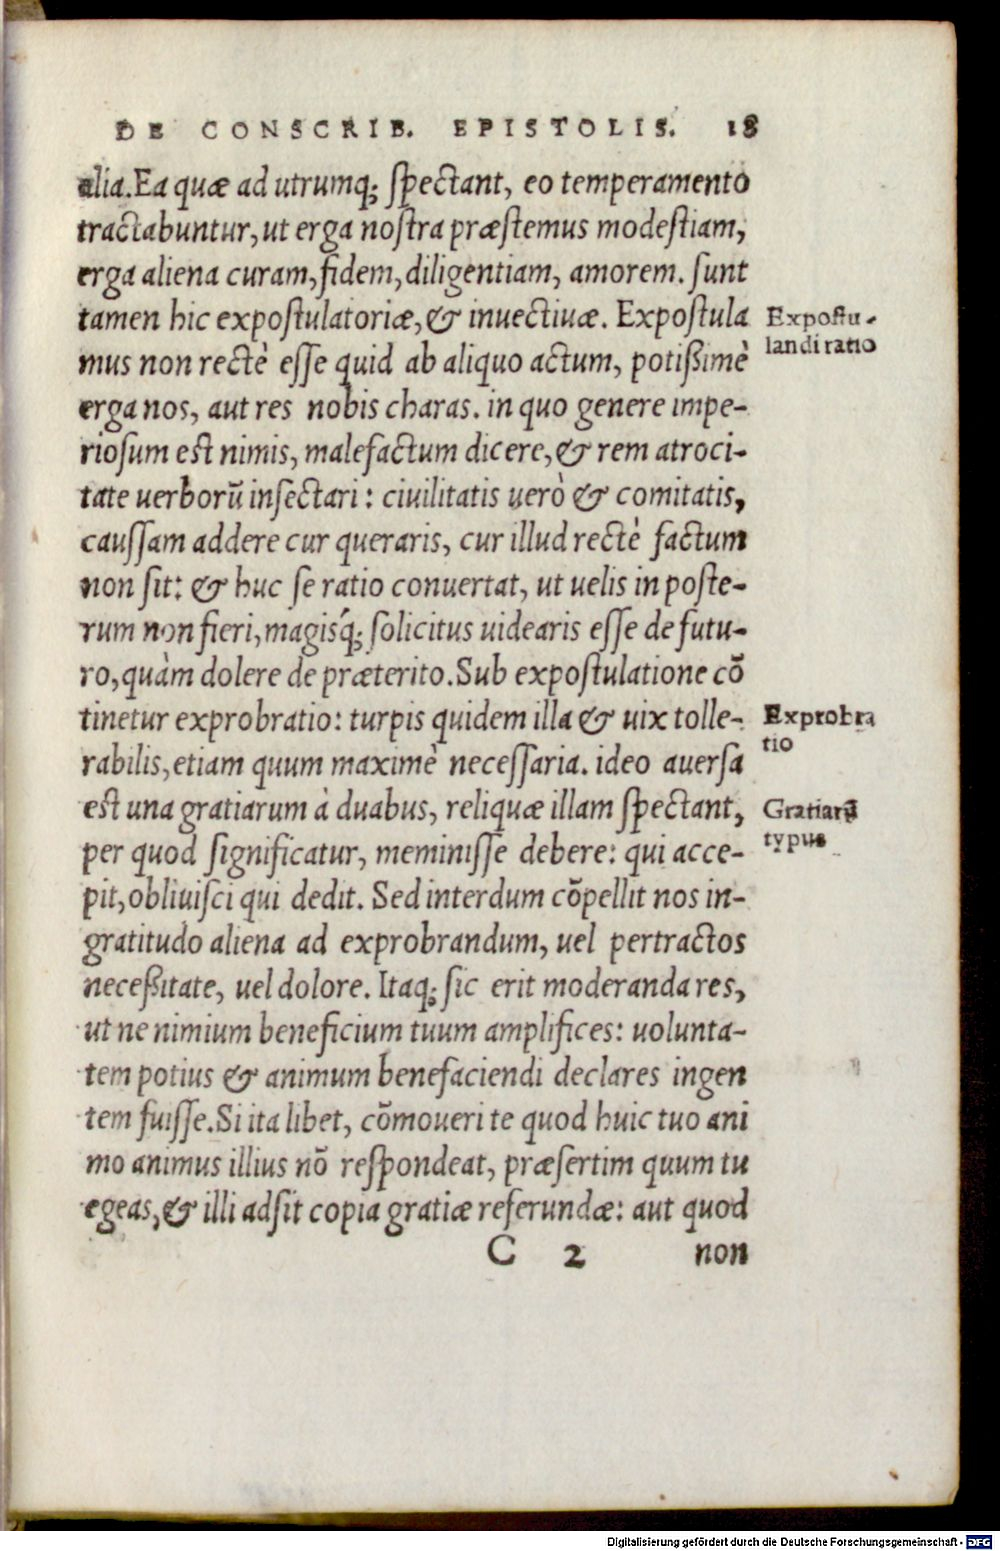 DE CONSCRIB. EPISTOLIS. 18
alia. Ea quæ ad utrumq; spectant, eo temperamento
tractabuntur, ut erga nostra præstemus modestiam,
erga aliena curam, fidem, diligentiam, amorem. sunt
tamen hic expostulatoriæ, & inuectiuæ. Expostula
Expostu-
landi ratio
mus non rectè esse quid ab aliquo actum, potißimè
erga nos, aut res nobis charas. in quo genere impe-
riosum est nimis, malefactum dicere, & rem atroci-
tate uerborū insectari: ciuilitatis uerò & comitatis,
caussam addere cur queraris, cur illud rectè factum
non sit: & huc se ratio conuertat, ut uelis in poste-
rum non fieri, magisq́; solicitus uidearis esse de futu-
ro, quàm dolere de præterito. Sub expostulatione cō
tinetur exprobratio: turpis quidem illa & uix tolle-
Exprobra
tio
rabilis, etiam quum maximè necessaria. ideo auersa
est una gratiarum à duabus, reliquæ illam spectant,
Gratiarū
typus
per quod significatur, meminisse debere: qui acce-
pit, obliuisci qui dedit. Sed interdum cōpellit nos in-
gratitudo aliena ad exprobrandum, uel pertractos
neceßitate, uel dolore. Itaq; sic erit moderanda res,
ut ne nimium beneficium tuum amplifices: uolunta-
tem potius & animum benefaciendi declares ingen
tem fuisse. Si ita libet, cōmoueri te quod huic tuo ani
mo animus illius nō respondeat, præsertim quum tu
egeas, & illi adsit copia gratiæ referundæ: aut quod
C 2 non
Digitalisierung gefördert durch die Deutsche Forschungsgemeinschaft - DFG